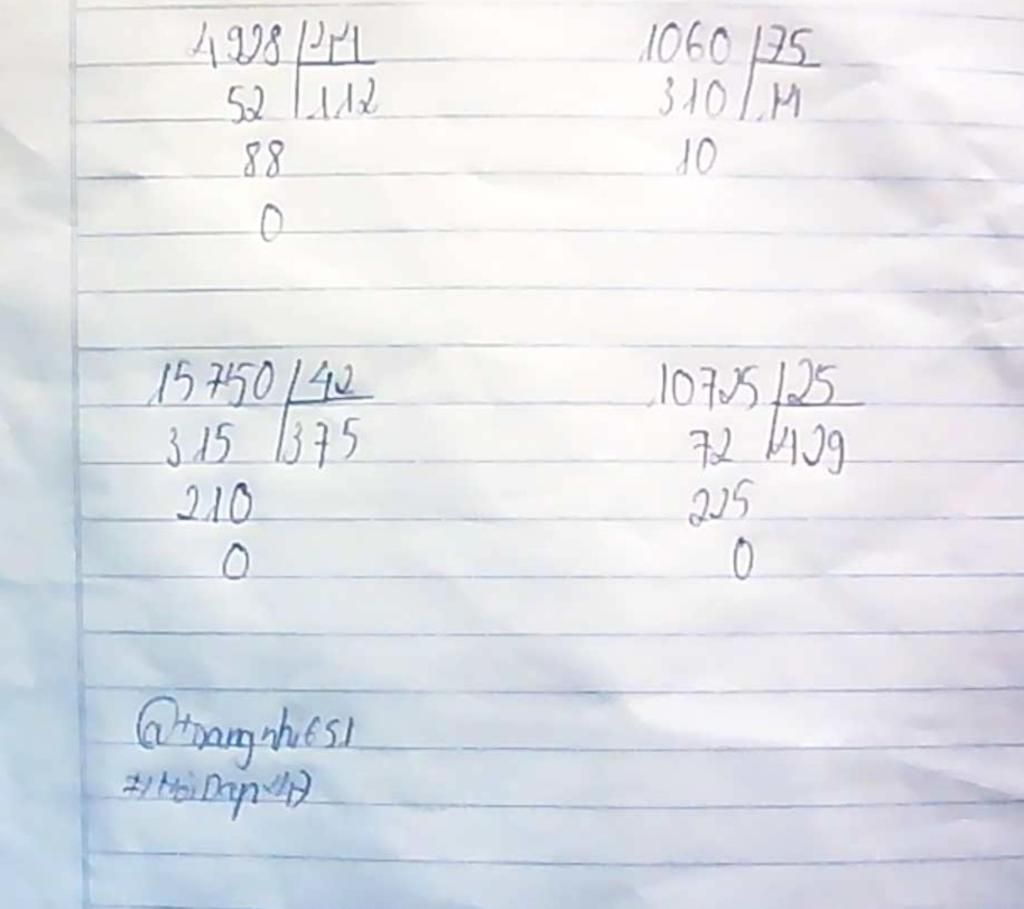 4928 | 44
52 | 112
88
0
1060 | 75
310 | 14
10
15750 | 42
315 | 375
210
0
10725 | 25
72 | 429
225
0